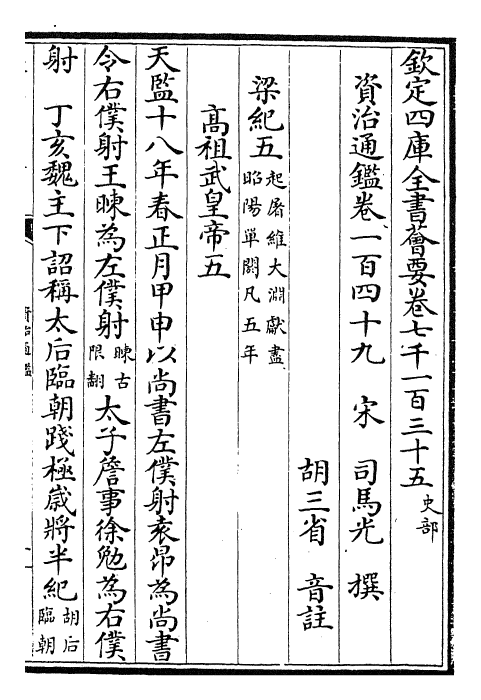 欽定四庫全書薈要卷七千一百三十五 史部
資治通鑑卷一百四十九 宋 司馬光 撰
胡三省 音註
梁紀五 起屠維大淵獻盡昭陽單閼凡五年
高祖武皇帝五
天監十八年春正月甲申以尚書左僕射袁昂為尚書
令右僕射王暕為左僕射 暕古限翻 太子詹事徐勉為右僕
射 丁亥魏主下詔稱太后臨朝踐極歲將半紀 胡后臨朝